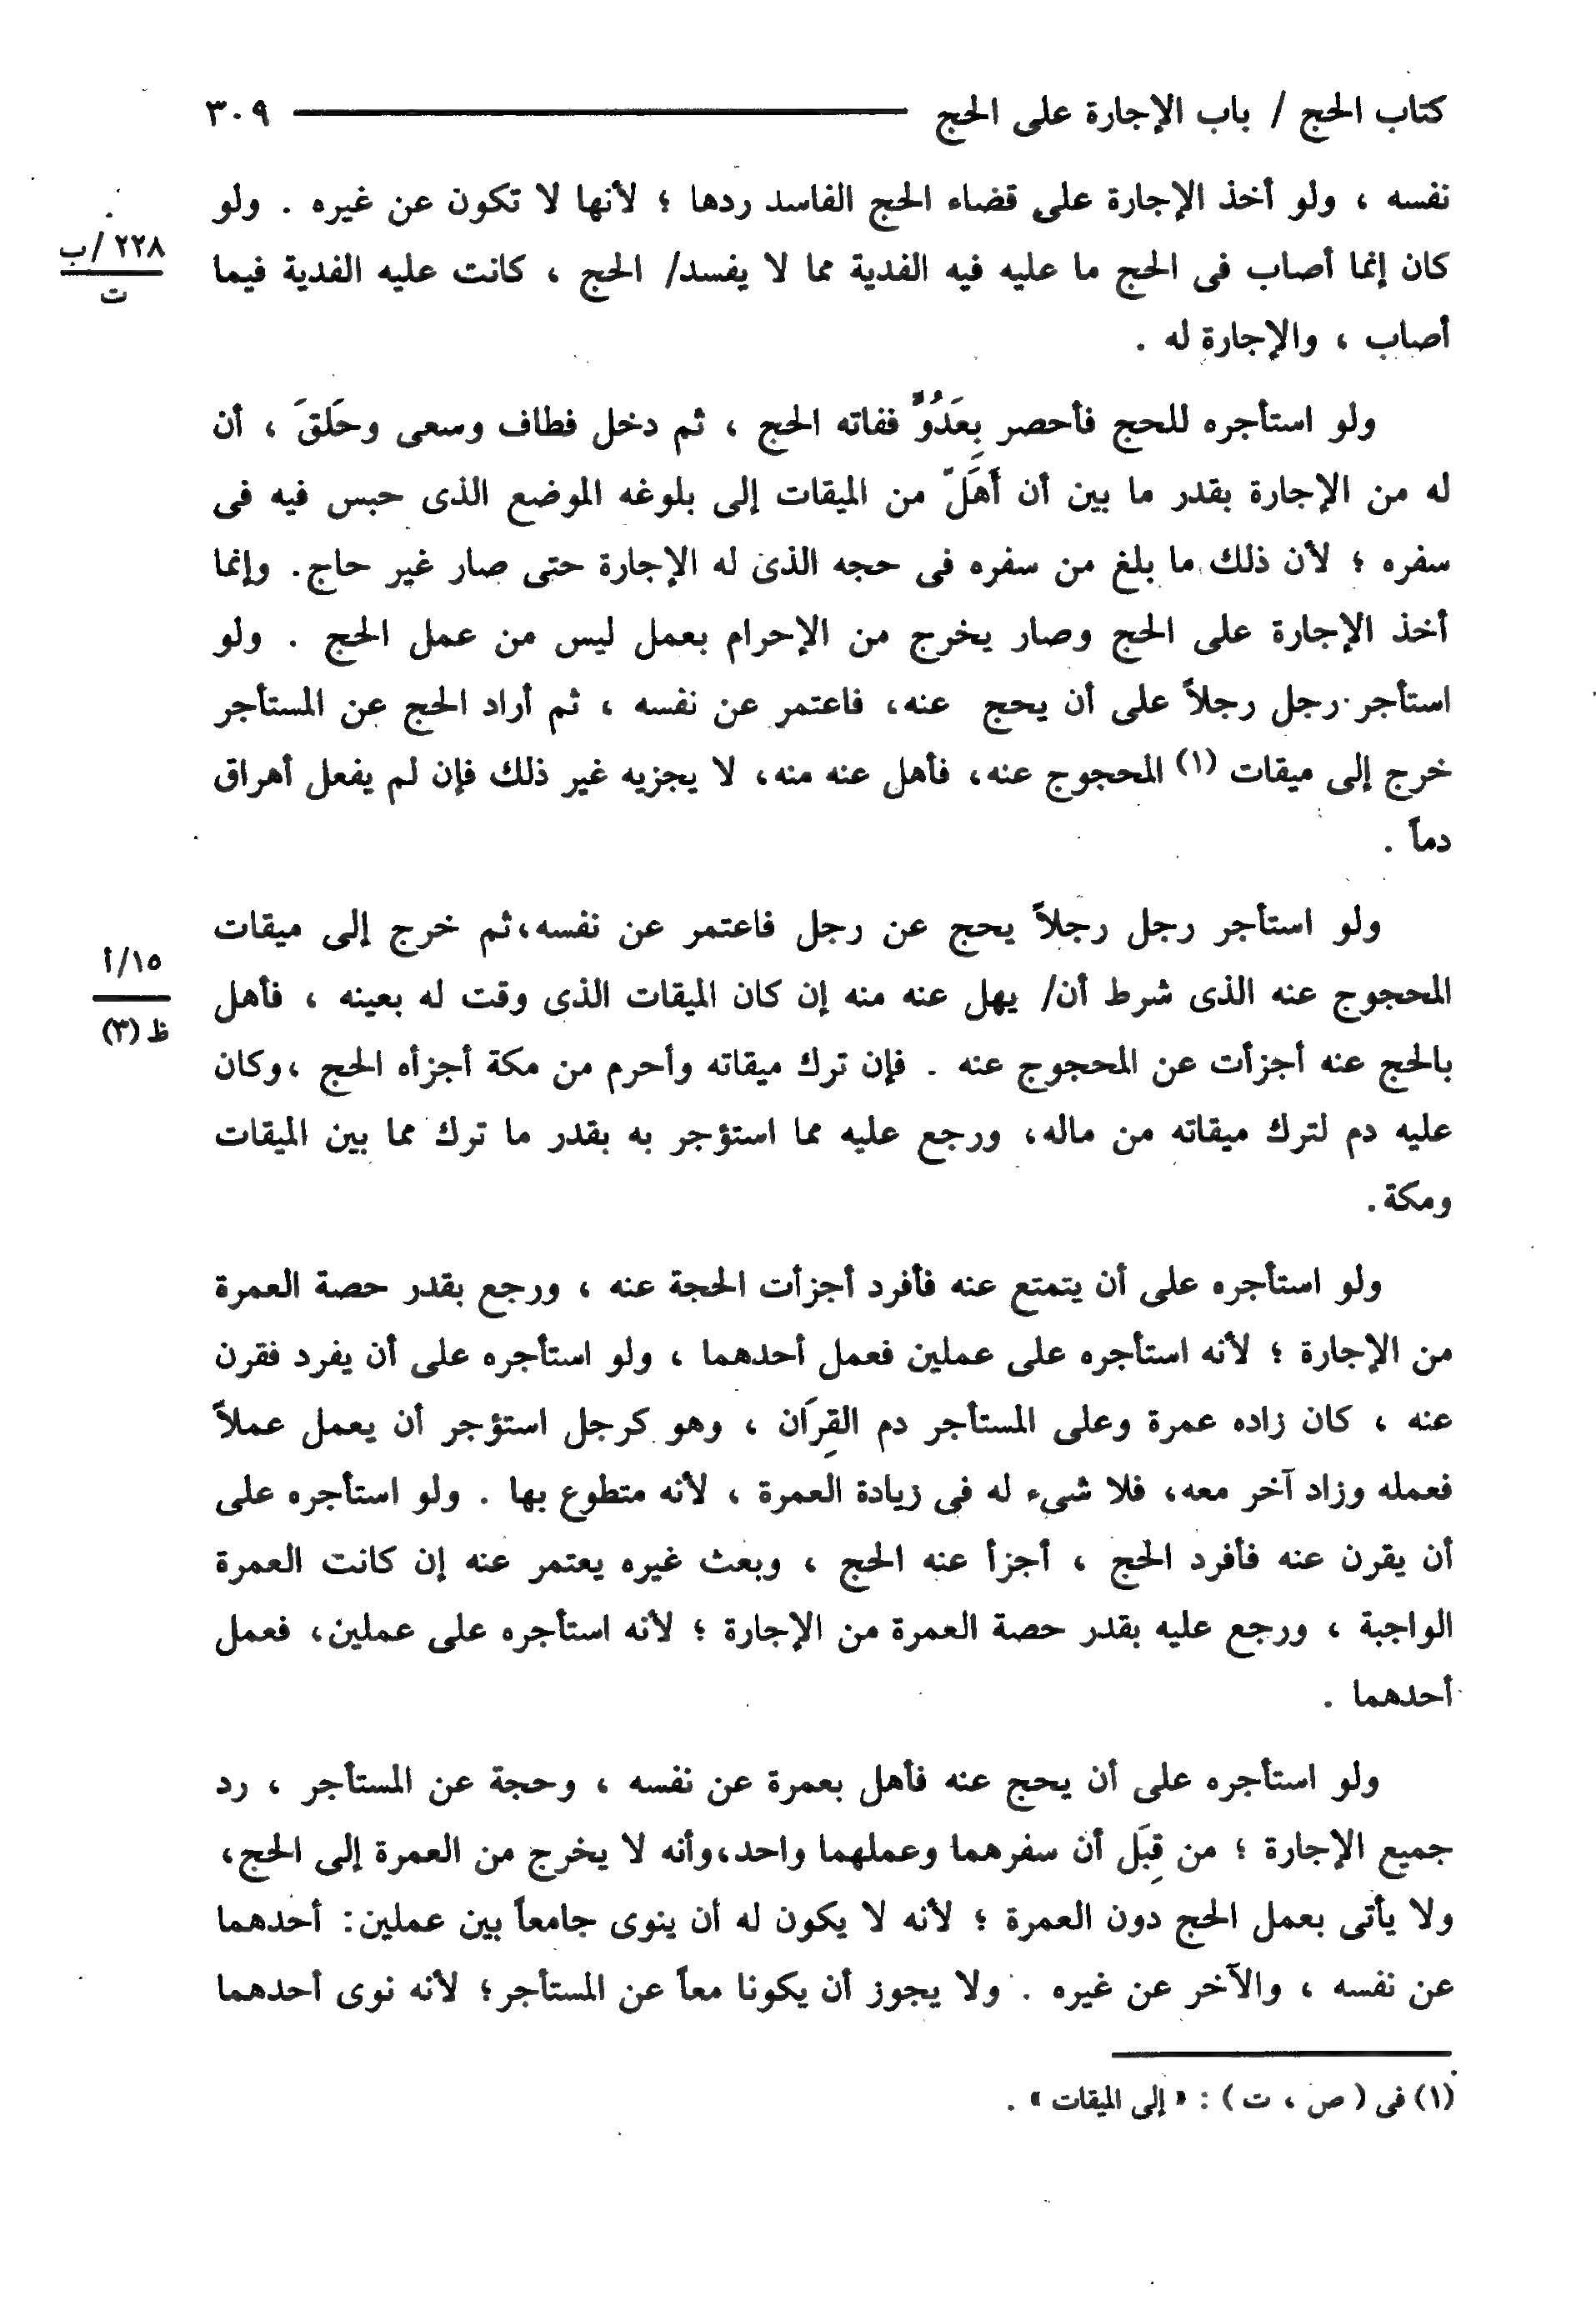 كتاب الحج / باب الإجارة على الحج ٣٠٩
نفسه ، ولو أخذ الإجارة على قضاء الحج الفاسد ردها ؛ لأنها لا تكون عن غيره . ولو
٢٢٨/ب
ت
كان إنما أصاب فى الحج ما عليه فيه الفدية مما لا يفسد/ الحج ، كانت عليه الفدية فيما
أصاب ، والإجارة له .
ولو استأجره للحج فأحصر بِعَدُوٍّ ففاته الحج ، ثم دخل فطاف وسعى وحَلَقَ ، أن
له من الإجارة بقدر ما بين أن أَهَلَّ من الميقات إلى بلوغه الموضع الذى حبس فيه فى
سفره ؛ لأن ذلك ما بلغ من سفره فى حجه الذى له الإجارة حتى صار غير حاج. وإنما
أخذ الإجارة على الحج وصار يخرج من الإحرام بعمل ليس من عمل الحج . ولو
استأجر رجل رجلاً على أن يحج عنه، فاعتمر عن نفسه ، ثم أراد الحج عن المستأجر
خرج إلى ميقات (١) المحجوج عنه، فأهل عنه منه، لا يجزيه غير ذلك فإن لم يفعل أهراق
دماً .
ولو استأجر رجل رجلاً يحج عن رجل فاعتمر عن نفسه،ثم خرج إلى ميقات
١٥/أ
ظ (٣)
المحجوج عنه الذى شرط أن/ يهل عنه منه إن كان الميقات الذى وقت له بعينه ، فأهل
بالحج عنه أجزأت عن المحجوج عنه . فإن ترك ميقاته وأحرم من مكة أجزأه الحج ،وكان
عليه دم لترك ميقاته من ماله، ورجع عليه مما استؤجر به بقدر ما ترك مما بين الميقات
ومكة.
ولو استأجره على أن يتمتع عنه فأفرد أجزأت الحجة عنه ، ورجع بقدر حصة العمرة
من الإجارة ؛ لأنه استأجره على عملين فعمل أحدهما ، ولو استأجره على أن يفرد فقرن
عنه ، كان زاده عمرة وعلى المستأجر دم القِرَان ، وهو كرجل استؤجر أن يعمل عملاً
فعمله وزاد آخر معه، فلا شىء له فى زيادة العمرة ، لأنه متطوع بها . ولو استأجره على
أن يقرن عنه فأفرد الحج ، أجزأ عنه الحج ، وبعث غيره يعتمر عنه إن كانت العمرة
الواجبة ، ورجع عليه بقدر حصة العمرة من الإجارة ؛ لأنه استأجره على عملين، فعمل
أحدهما .
ولو استأجره على أن يحج عنه فأهل بعمرة عن نفسه ، وحجة عن المستأجر ، رد
جميع الإجارة ؛ من قِبَل أن سفرهما وعملهما واحد،وأنه لا يخرج من العمرة إلى الحج،
ولا يأتى بعمل الحج دون العمرة ؛ لأنه لا يكون له أن ينوى جامعاً بين عملين: أحدهما
عن نفسه ، والآخر عن غيره . ولا يجوز أن يكونا معاً عن المستأجر؛ لأنه نوى أحدهما
(١) فى ( ص ، ت ) : « إلى الميقات » .